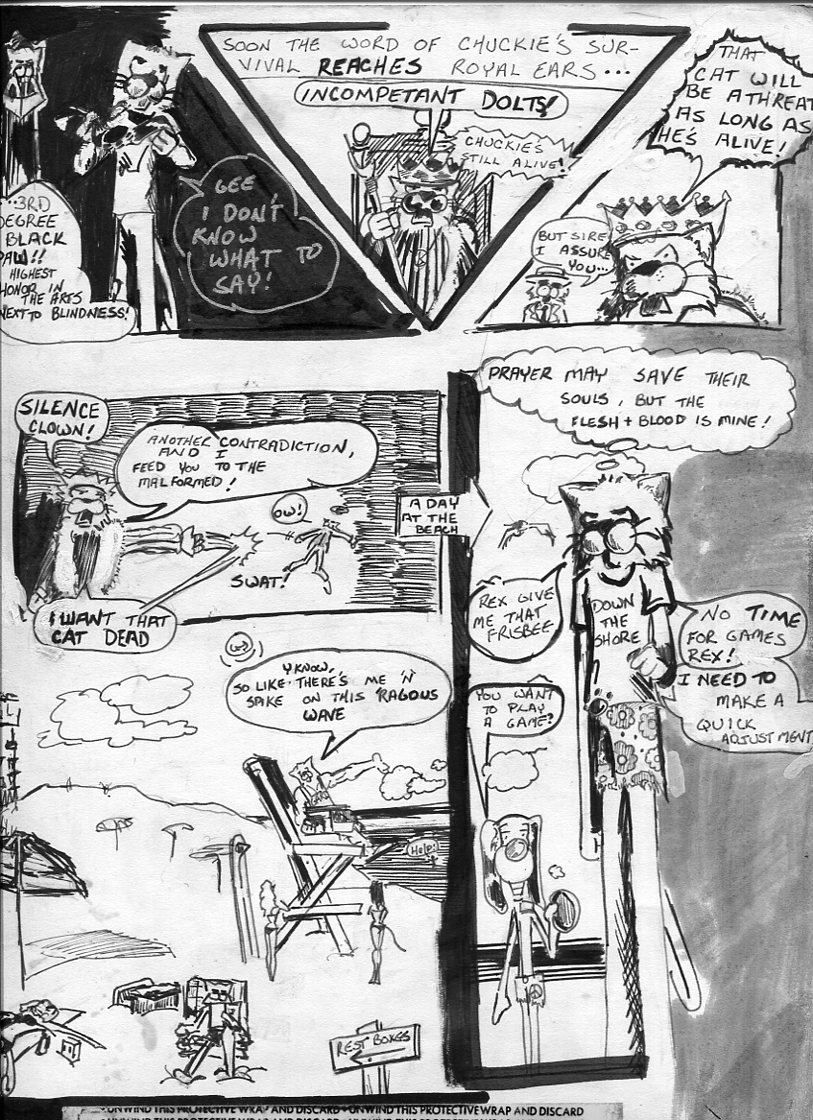 ...3RD
DEGREE
BLACK
PAW!!
HIGHEST
HONOR IN
THE ARTS
NEXT TO BLINDNESS!
GEE
I DON'T
KNOW
WHAT TO
SAY!
SOON THE WORD OF CHUCKIE'S SUR-
VIVAL REACHES ROYAL EARS...
INCOMPETANT DOLTS!
CHUCKIE'S
STILL ALIVE!
THAT
CAT WILL
BE A THREAT
AS LONG AS
HE'S ALIVE!
BUT SIRE
I ASSURE
YOU...
SILENCE
CLOWN!
ANOTHER CONTRADICTION,
AND I
FEED YOU TO THE
MALFORMED!
OW!
SWAT!
I WANT THAT
CAT DEAD
A DAY
AT THE
BEACH
PRAYER MAY SAVE THEIR
SOULS, BUT THE
FLESH + BLOOD IS MINE!
REX GIVE
ME THAT
FRISBEE
DOWN
THE
SHORE
NO TIME
FOR GAMES
REX!
I NEED TO
MAKE A
QUICK
ADJUSTMENT
YOU WANT
TO PLAY
A GAME?
Y'KNOW,
SO LIKE THERE'S ME 'N'
SPIKE ON THIS 'RAGOUS
WAVE
Help!
REST BOXES
UNWIND THIS PROTECTIVE WRAP AND DISCARD • UNWIND THIS PROTECTIVE WRAP AND DISCARD